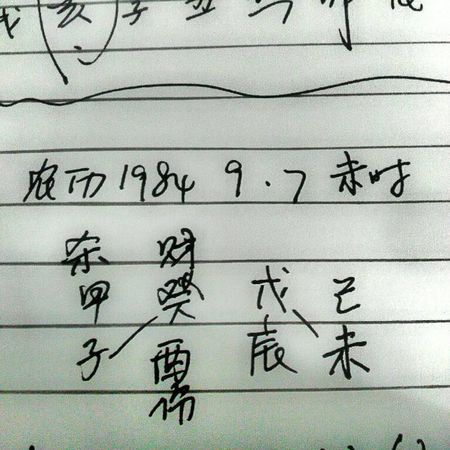 亥子丑
农历1984 9.7 未时
杀 财
甲 癸 戊 己
子 酉 辰 未
伤